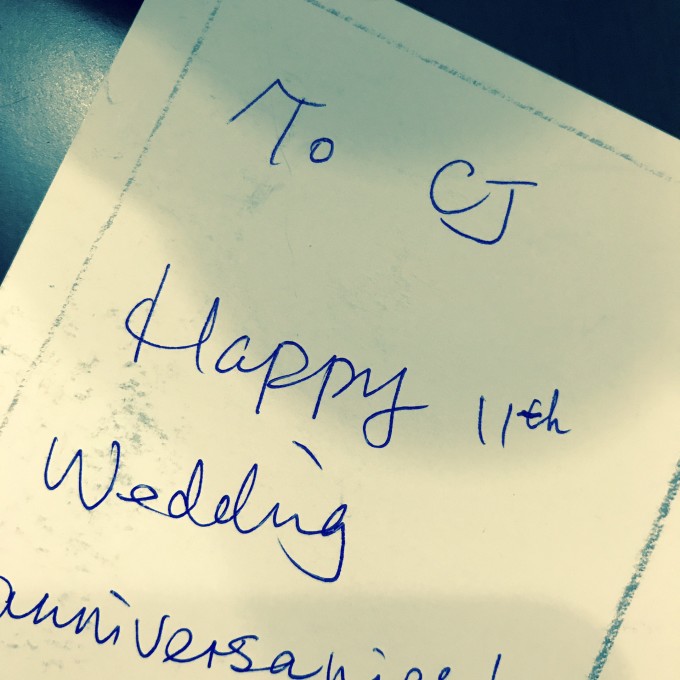 To CJ
Happy 11th
Wedding
anniversaries!